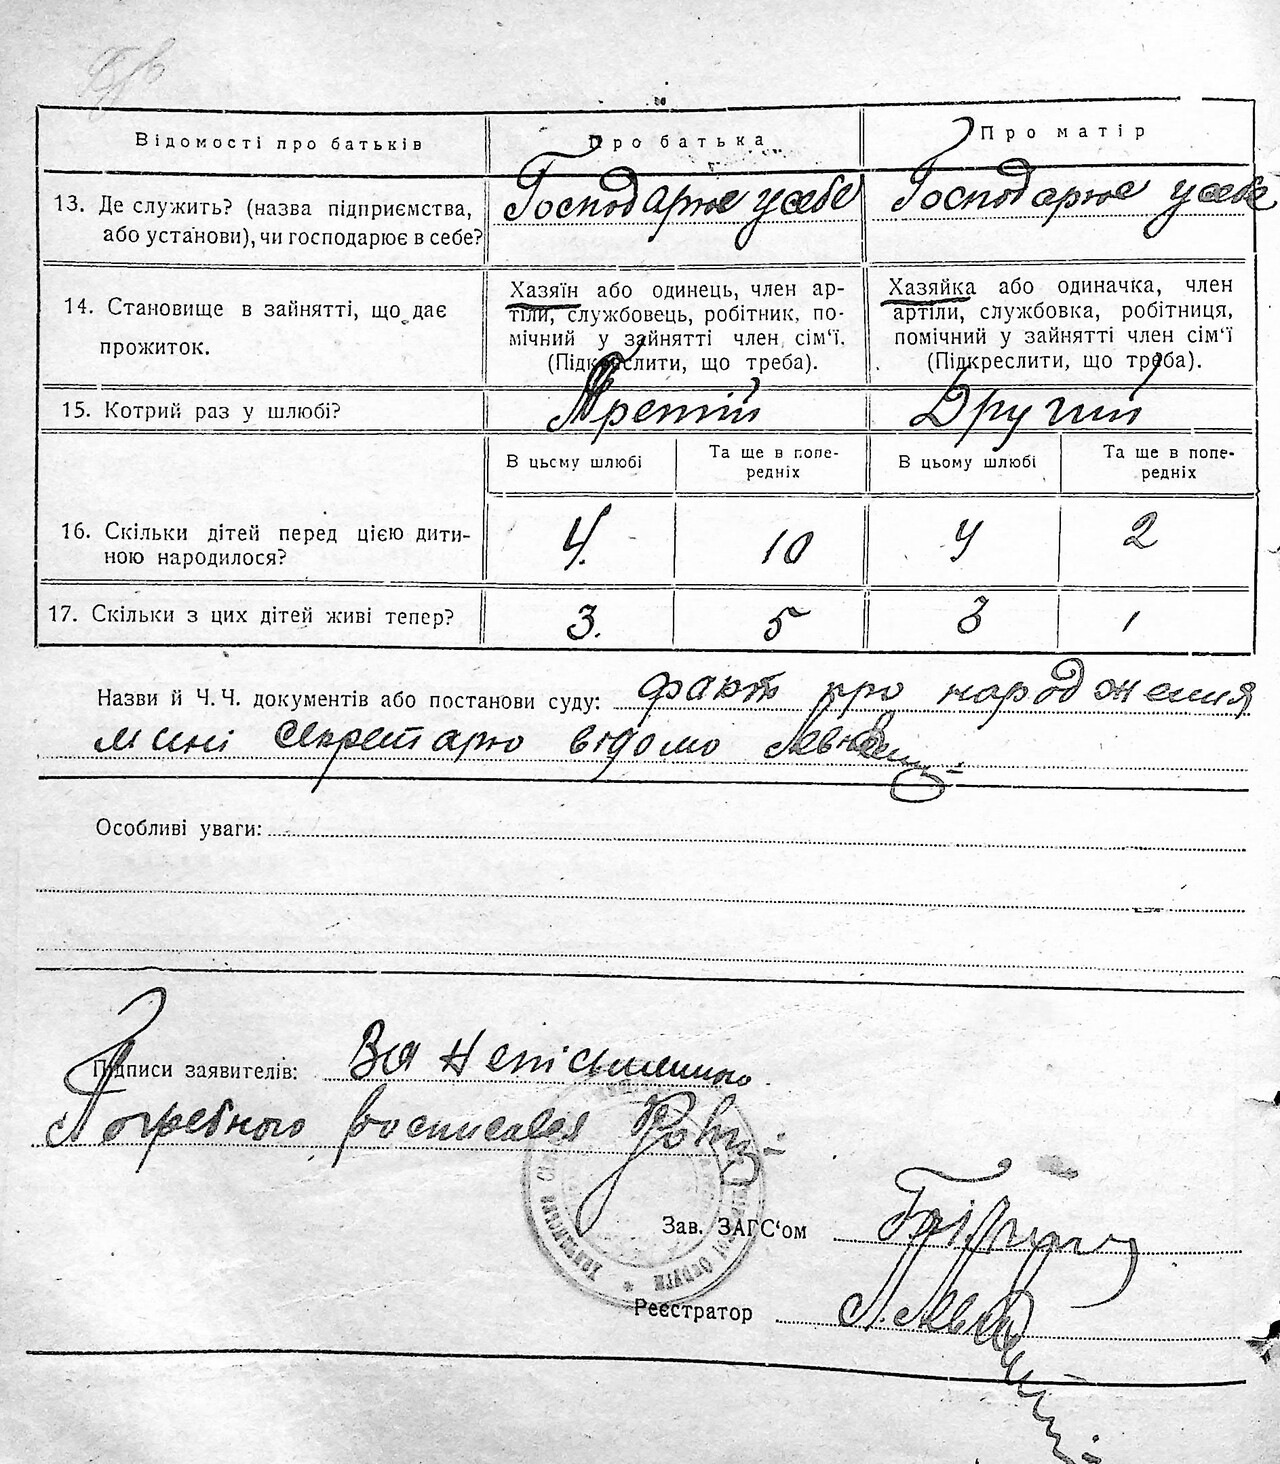 Відомості про батьків Про батька Про матір
13. Де служить? (назва підприємства, або установи), чи господарює в себе? Господарює у себе Господарює у себе
14. Становище в зайнятті, що дає прожиток.
Хазяїн або одинець, член ар-
тіли, службовець, робітник, по-
мічний у зайнятті член сім'ї.
(Підкреслити, що треба).
Хазяйка або одиначка, член
артіли, службовка, робітниця,
помічний у зайнятті член сім'ї
(Підкреслити, що треба).
15. Котрий раз у шлюбі? Третій Другий
В цьсму шлюбі Та ще в попе-
редніх В цьому шлюбі Та ще в попе-
редніх
16. Скільки дітей перед цією дити-
ною народилося? 4. 10 4 2
17. Скільки з цих дітей живі тепер? 3. 5 3 1
Назви й Ч.Ч. документів або постанови суду: факт про народження
мині секретарю відомо
Особливі уваги:
Підписи заявителів: За неписьменного
Погребного росписався
Зав. ЗАГС'ом
Реєстратор
Округи